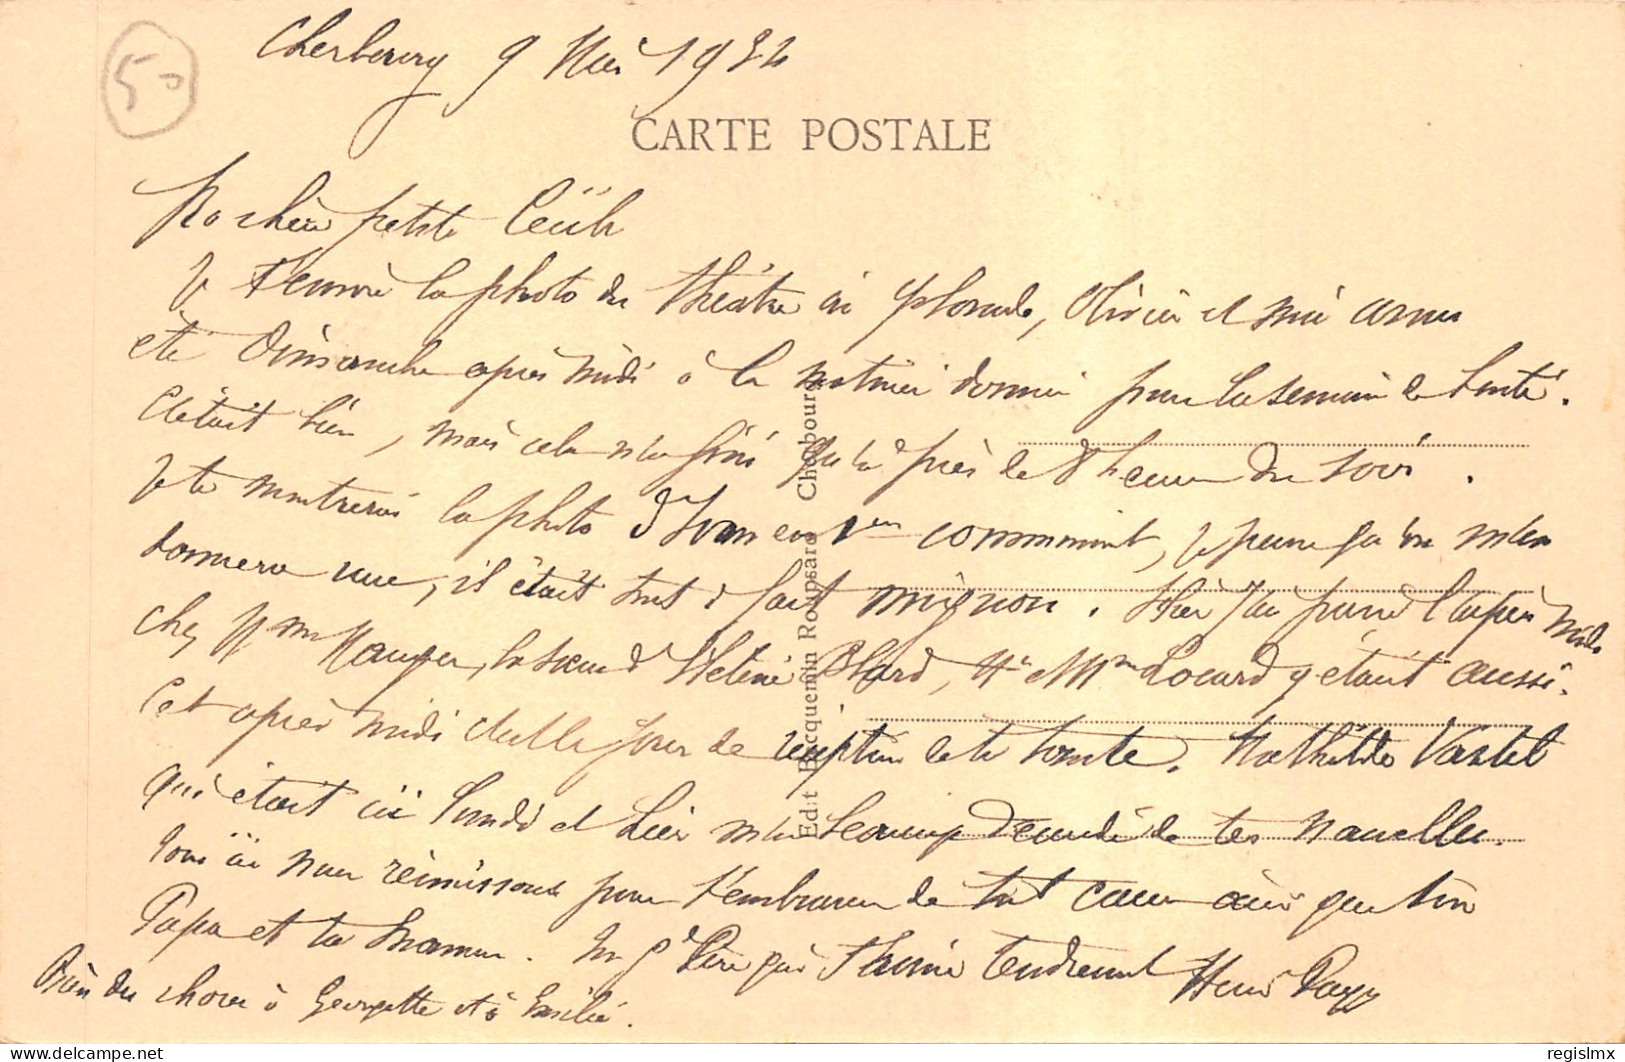 50
Cherbourg 9 Mai 1934
CARTE POSTALE
Ma chère petite Cécile
Je t'envoie la photo du théâtre ici Olivier et moi avons
été Dimanche après midi à la matinée donnée pour la semaine de bonté.
C'était bien, mais cela n'a fini qu'à près de 8 heures du soir.
Je te montrerai la photo d' en communiant, je pense qu'on m'en
donnera une, il était tout à fait mignon. Hier j'ai passé l'après midi
chez Mme Mauger, la soeur d'Hélène Mr et Mme Locard y était aussi.
Cet après midi c'est le jour de réception de ta tante. Mathilde Vastel
qui était ici lundi et hier m'a beaucoup demandé de tes nouvelles.
Tous ici nous réunissons pour t'embrasser de tout coeur ainsi que ton
Papa et ta Maman. Ton Gd Père qui t'aime tendrement Henri
Bien des choses à Georgette et à Emilie.
Edit Bacquemin Roupsard Cherbourg
regislmx